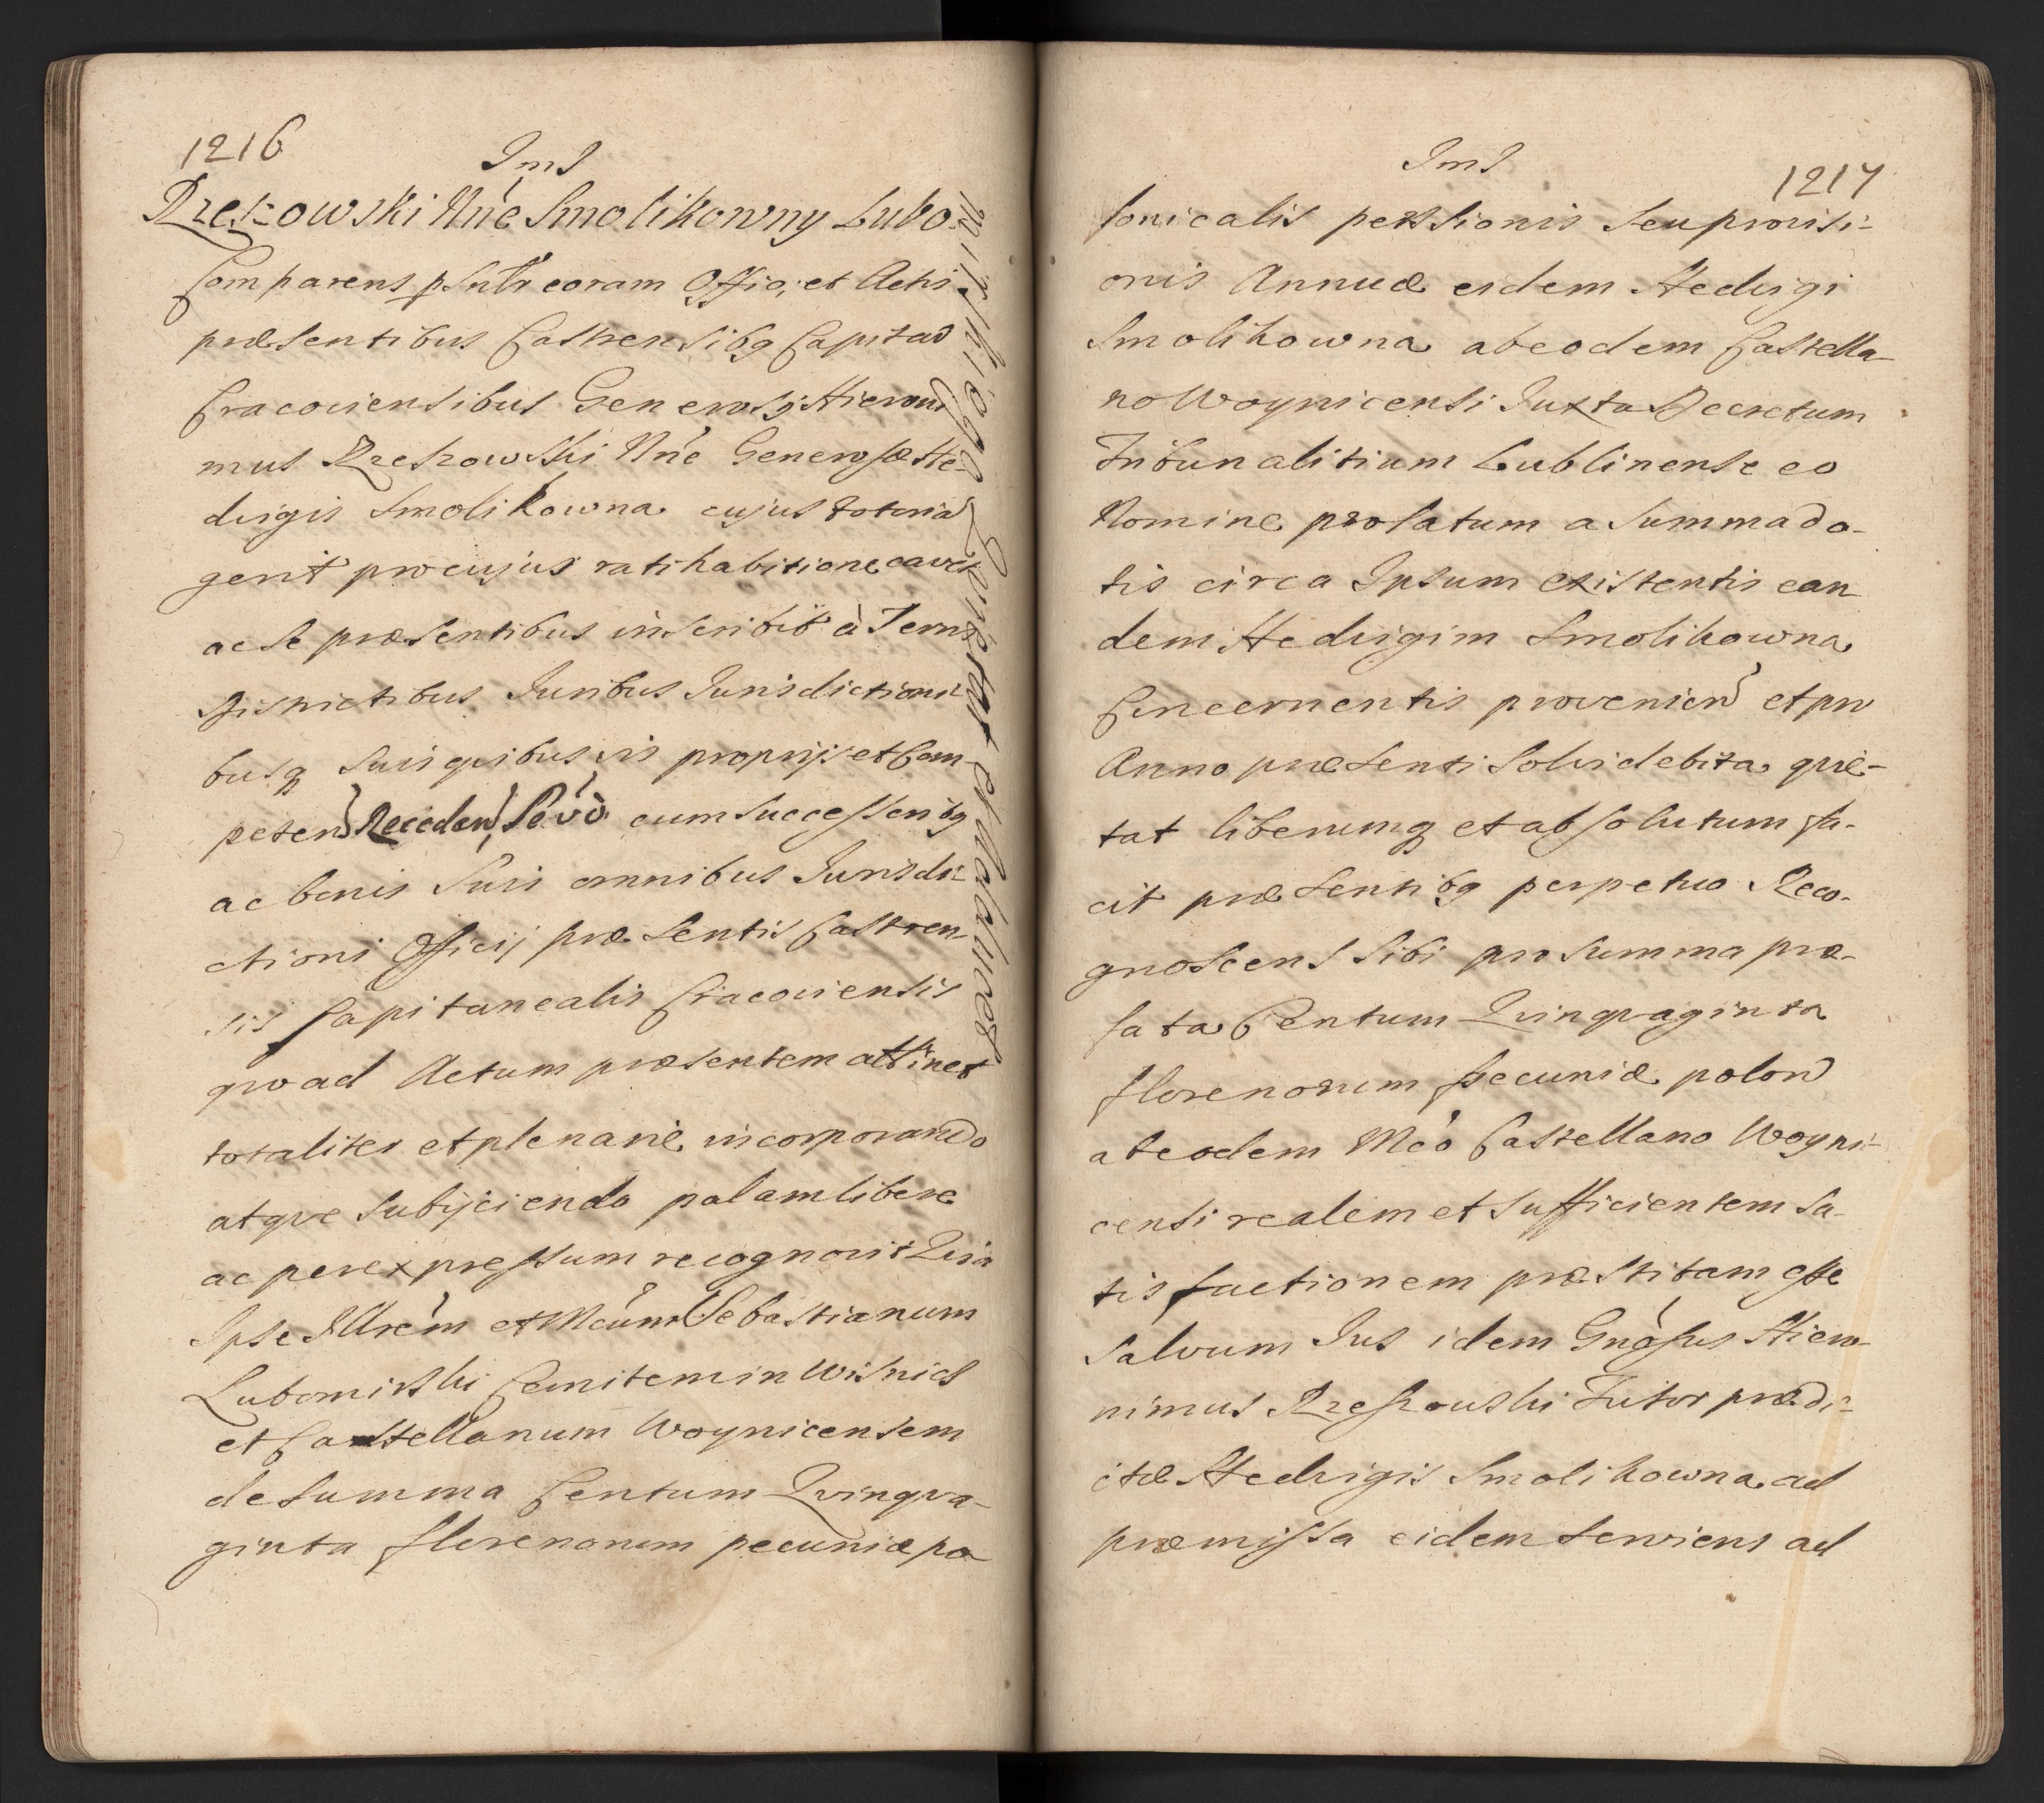 1216
ImJ
Rzeszowski Nńe Smolikowny Lubo-
mirskiego Comitem et Castellanum
Comparens psntr coram Offio; et Actis
præsentibus Castrensibq Capitad
Cracoviensibus Generosq Hieroni
mus Rzeszowski Nńe Generosæ He-
dvigis Smolikowna cujus totoria
gerit pro cujus ratihabitione cavet
ac se præsentibus inscribit à Terris
Districtibus Juribus Jurisdictioni-
busq Suis quibusvis proprijs et Com
peten Receden, Sevò cum Successoribq
ac bonis Suis omnibus Jurisdi-
ctioni Officij præsentis Castren-
sis Capitanealis Cracoviensis
quo ad Actum præsentem attinet
totaliter et plenarie incorporando
atqve subijciendo palam libere
ac per expressum recognovit Qvia
Ipse Illrem et Mcum Sebastianum
Lubomirski Comitem in Wisnics
et Castellanum Woynicensem
de Summa Centum Qvinqva-
ginta florenorum pecuniæ po
ImJ
1217
lonicalis penssionis Seu provisi-
onis Annuæ eidem Hedvigi
Smolikowna ab eodem Castella-
no Woynicensi Juxta Decretum
Tribunalitium Lublinense eo
Nomine prolatum a Summa do-
tis circa Ipsum existentis ean
dem Hedvigim Smolikowna
Concernentis provenien et pro
Anno præsenti Solvi debita qvie-
tat liberumq et absolutum fa-
cit præsentibq perpetuo Reco-
gnoscens Sibi pro Summa præ-
fata Centum Qvinqvaginta
florenorum pecuniæ polon
ab eodem Mco Castellano Woyni-
censi realem et Sufficientem Sa-
tisfactionem præstitam esse
Salvum Jus idem Gnosus Hiero-
nimus Rzeszouski Tutor prædi-
ctæ Hedvigis Smolikowna ad
præmissa eidem Serviens ad